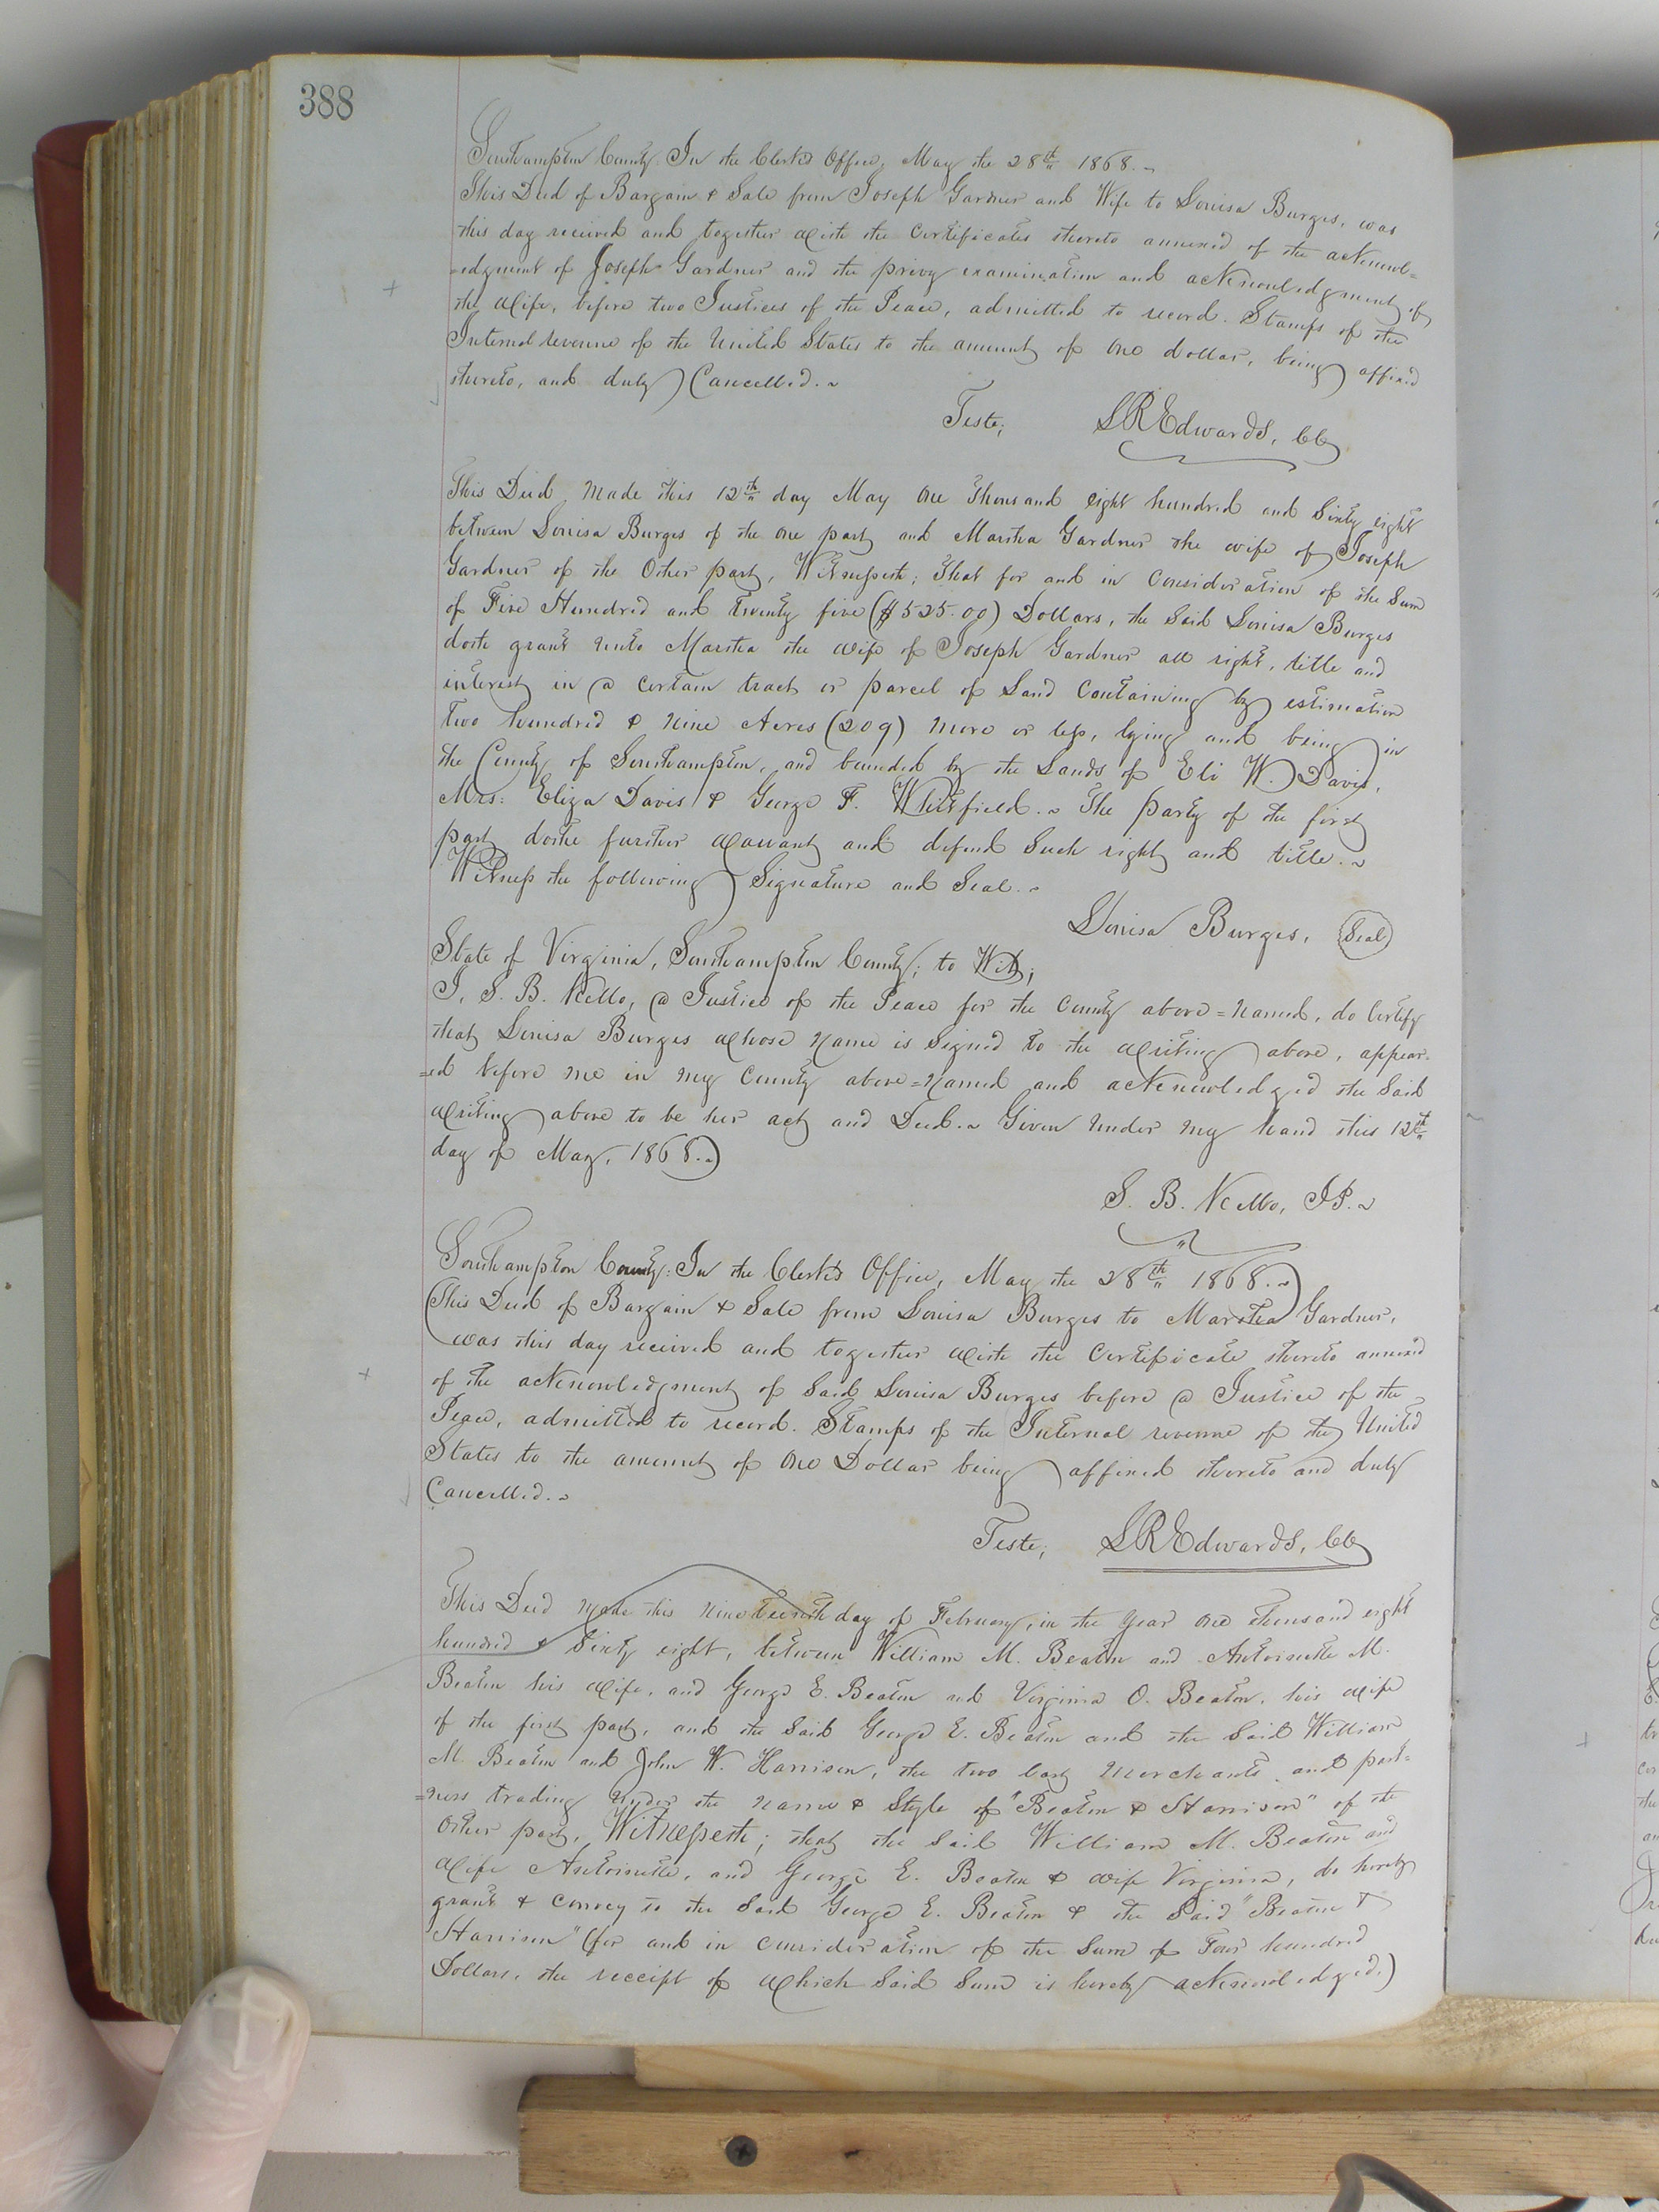 388
Southampton County: In the Clerk's Office, May the 28th 1868.~
This Deed of Bargain & Sale from Joseph Gardner and Wife to Louisa Burges, was
this day received and together with the Certificates thereto annexed of the acknowl=
=edgment of Joseph Gardner and the privy examination and acknowledgment of
the Wife, before two Justices of the Peace, admitted to record. Stamps of the
Internal revenue of the United States to the amount of one dollar, being affixed
thereto, and duly Cancelled.~
Teste; L R Edwards, CC
This Deed, Made this 12th day May One Thousand eight hundred and Sixty eight
between Louisa Burges of the one part and Martha Gardner the wife of Joseph
Gardner of the Other part, Witnesseth; That for and in Consideration of the Sum
of Five Hundred and twenty five ($525.00) Dollars, the Said Louisa Burges
doth grant unto Martha the wife of Joseph Gardner all right, title and
interest in a certain tract or parcel of Land Containing by estimation
Two hundred & nine Acres (209) more or less, lying and being in
the County of Southampton, and bounded by the Lands of Eli W. Davis,
Mrs: Eliza Davis & George F. Whitfield.~ The party of the first
part dothe further warant and defend Such right and title.~
Witness the following Signature and Seal.~
Louisa Burges, (Seal)
State of Virginia, Southampton County; to Wit;
I, S. B. Kello, a Justice of the Peace for the County above=named, do Certify
that Louisa Burges whose name is signed to the writing above, appear=
=ed before me in my County above=named and acknowledged the Said
writing above to be her act and Deed.~ Given under my hand this 12th
day of May, 1868.~
S. B. Kello, JP.~
Southampton County: In the Clerk's Office, May the 28th 1868.~
This Deed of Bargain & Sale from Louisa Burges to Martha Gardner,
was this day received and together with the Certificate thereto annexed
of the acknowledgment of Said Louisa Burges before a Justice of the
Peace, admitted to record. Stamps of the Internal revenue of the United
States to the amount of One Dollar being affixed thereto and duly
Cancelled.~
Teste; L R Edwards, CC
This Deed made this nineteenth day of February, in the year one thousand eight
hundred & Sixty eight, between William M. Beaton and Antoinette M.
Beaton his wife, and George E. Beaton and Virginia O. Beaton, his wife
of the first part, and the Said George E. Beaton and the Said William
M. Beaton and John W. Harrison, the two last Merchants and part=
=ners trading under the name & Style of "Beaton & Harrison" of the
Other part, Witnesseth; that the Said William M. Beaton and
wife Antoinette, and George E. Beaton & wife Virginia, do hereby
grant & Convey to the Said George E. Beaton & the Said "Beaton &
Harrison" (for and in consideration of the Sum of Four hundred
Dollars, the receipt of which Said Sum is hereby acknowledged.)